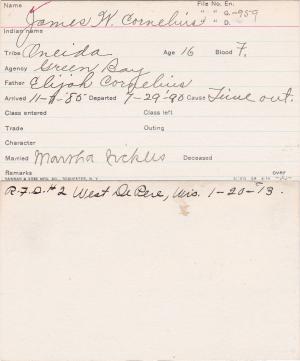 Name File No. En.
James W. Cornelius " " G-959
Indian name " " D.
Tribe Oneida Age 16 Blood F.
Agency Green Bay
Father Elijah Cornelius
Arrived 11-8-85 Departed 7-29-90 Cause Time out.
Class entered Class left
Trade Outing
Character
Married Martha Sickles Deceased
Remarks over
R.F.D. #2 West De Pere, Wis. 1-20-13.